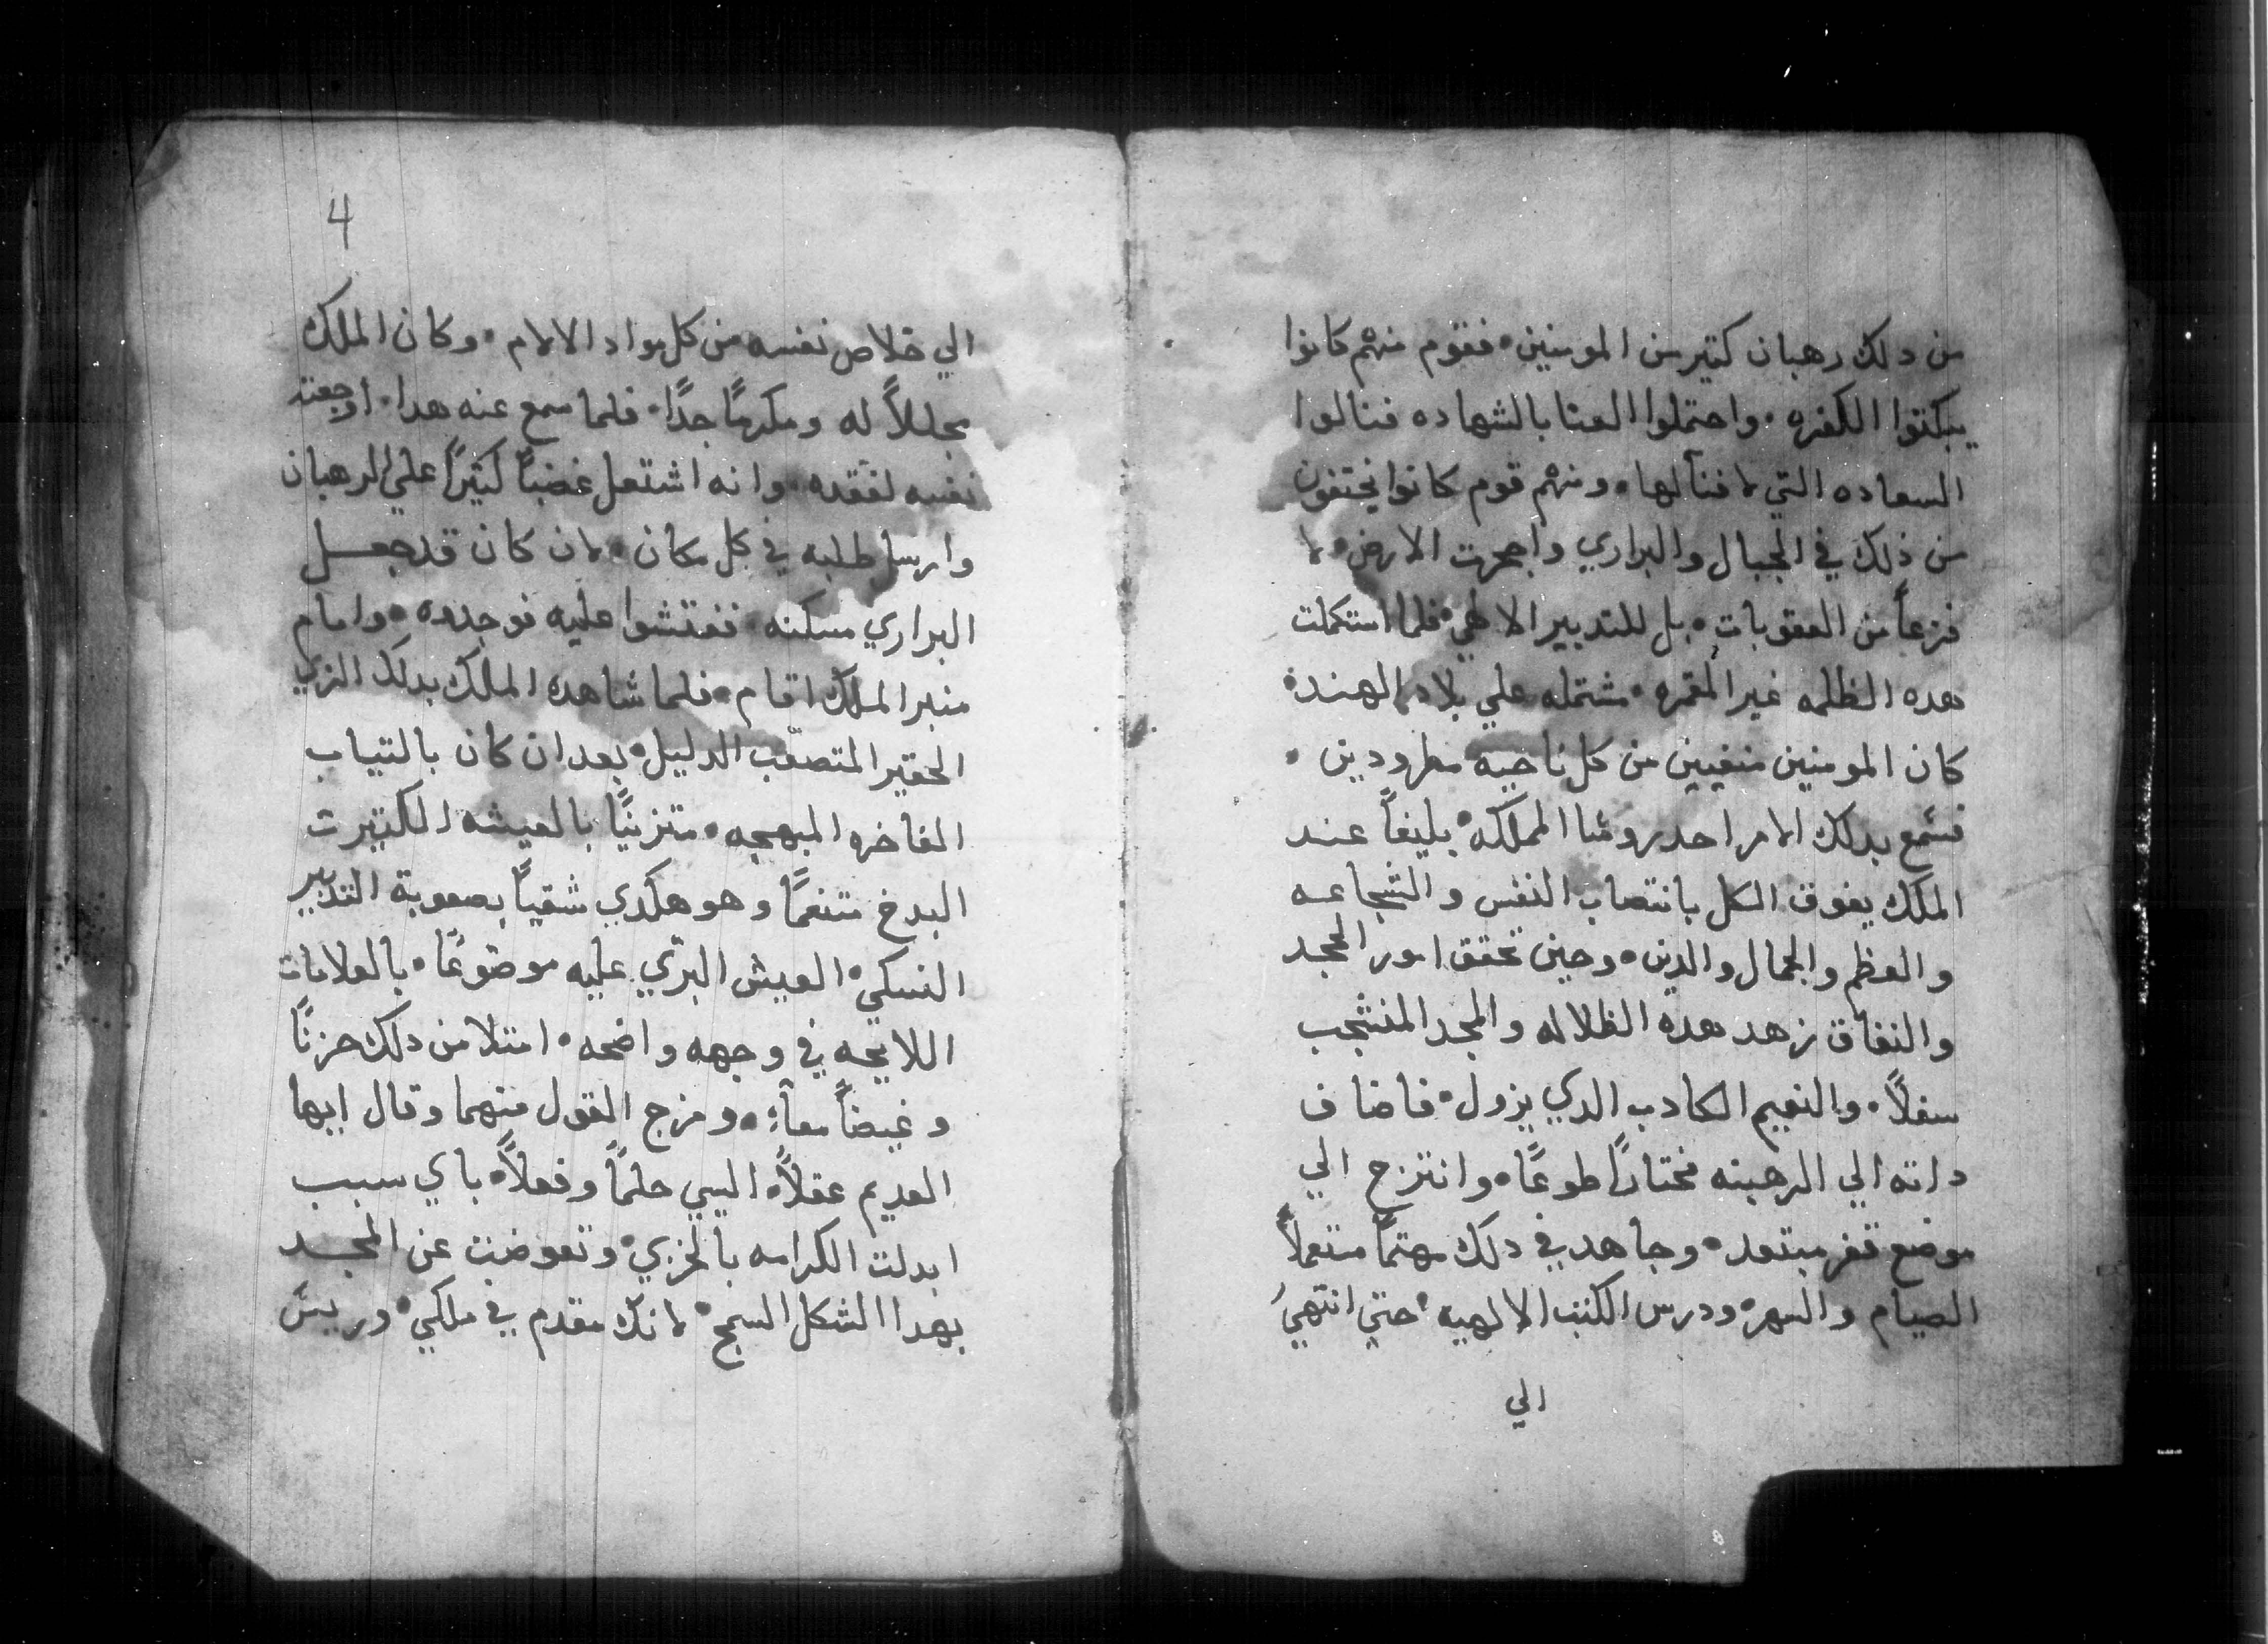 من دلك رهبان كتير من المومنين • فقوم منهم كانوا
يبكتوا الكفره • واحتملوا العنا بالشهاده فنالوا
السعاده التي لا فنآ لها • ومنهم قوم كانوا يختفون
من ذلك في الجبال والبراري واجحرت الارض • لا
فزعاً من العقوبات • بل للتدبير الالهي • فلما استكملت
هده الظلمه غير المقمره • مشتمله علي بلاد الهند •
كان المومنين منفيين من كل ناحيه مطرودين •
فسمع بدلك الامر احد روسا المملكه • بليغاً عند
الملك يفوق الكل بانتصاب النفس والشجاعه
والعظم والجمال والدين • وحين تحقق امور الجحد
والنفاق زهد هده الظلاله والمجد المنشجب
سفلاً • والنعيم الكادب الدي يزول • فاضاف
داته الي الرهبنه مختارًا طوعًا • وانتزح الي
موضع قفر مبتعد • وجاهد في دلك مهتمًا متعملاً
الصيام والسهر • ودرس الكتب الالهيه • حتي انتهي
الي
4
الي خلاص نفسه من كل مواد الالام • وكان الملك
مجللاً له ومكرمًا جدًا • فلما سمع عنه هدا • اوجعته
نفسه لفقده • وانه اشتعل غضبًا كتيرًا علي الرهبان
وارسل طلبه في كل مكان • لان كان قد جعل
البراري مسكنه • ففتشوا عليه فوجدوه • وامام
منبر الملك اقام • فلما شاهده الملك بدلك الزي
الحقير المتصعب الدليل • بعد ان كان بالتياب
الفاخره المبهجه • متزينًا بالعيشه الكتيرت
البدخ متنعمًا وهو هكدي شقيًا بصعوبة التدبير
النسكي • العيش البري عليه موضوعًا • بالعلامات
اللايحه في وجهه واضحه • امتلا من دلك حزنًا
وغيضاً معاً • ومزج القول منهما وقال ايها
العديم عقلاً • السي حلمًا وفعلاً • باي سبب
ابدلت الكرامه بالخزي • وتعوضت عن المجد
بهدا الشكل السمج • لانك مقدم في ملكي • وريس